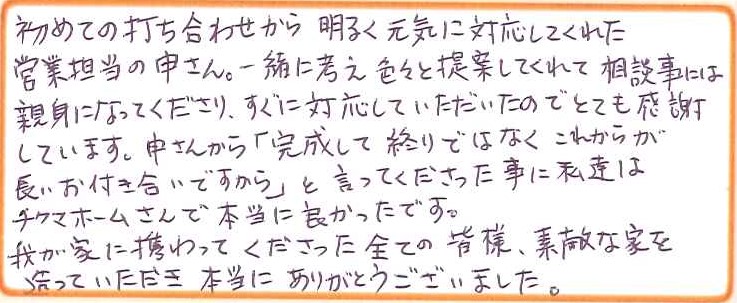 初めての打ち合わせから 明るく元気に対応してくれた
営業担当の申さん。一緒に考え色々と提案してくれて 相談事には
親身になってくださり、すぐに対応していただいたのでとても感謝
しています。申さんから「完成して 終りではなく これからが
長いお付き合いですから」と言ってくださった事に私達は
チクマホームさんで本当に良かったです。
我が家に携わって くださった全ての皆様、素敵な家を
造っていただき 本当に ありがとうございました。